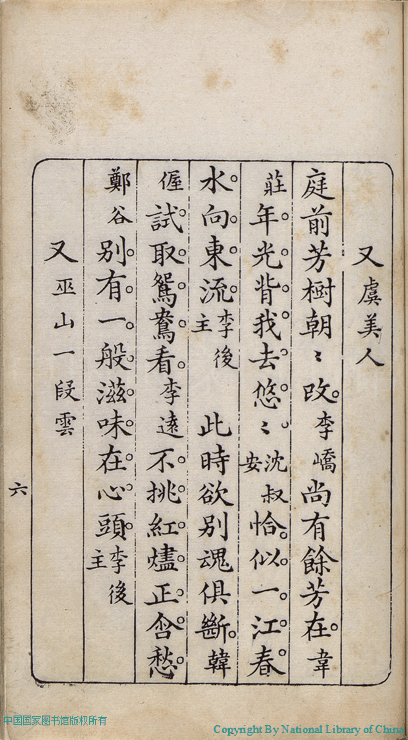 又虞美人
庭前芳樹朝〻改李嶠尚有餘芳在韋
莊年光背我去悠〻沈叔安恰似一江春
水向東流李後主 此時欲別魂俱斷韓
偓試取鴛鴦看李遠不挑紅燼正含愁
鄭谷別有一般滋味在心頭李後主
又巫山一段雲
六
中国国家图书馆版权所有
Copyright By National Library of China